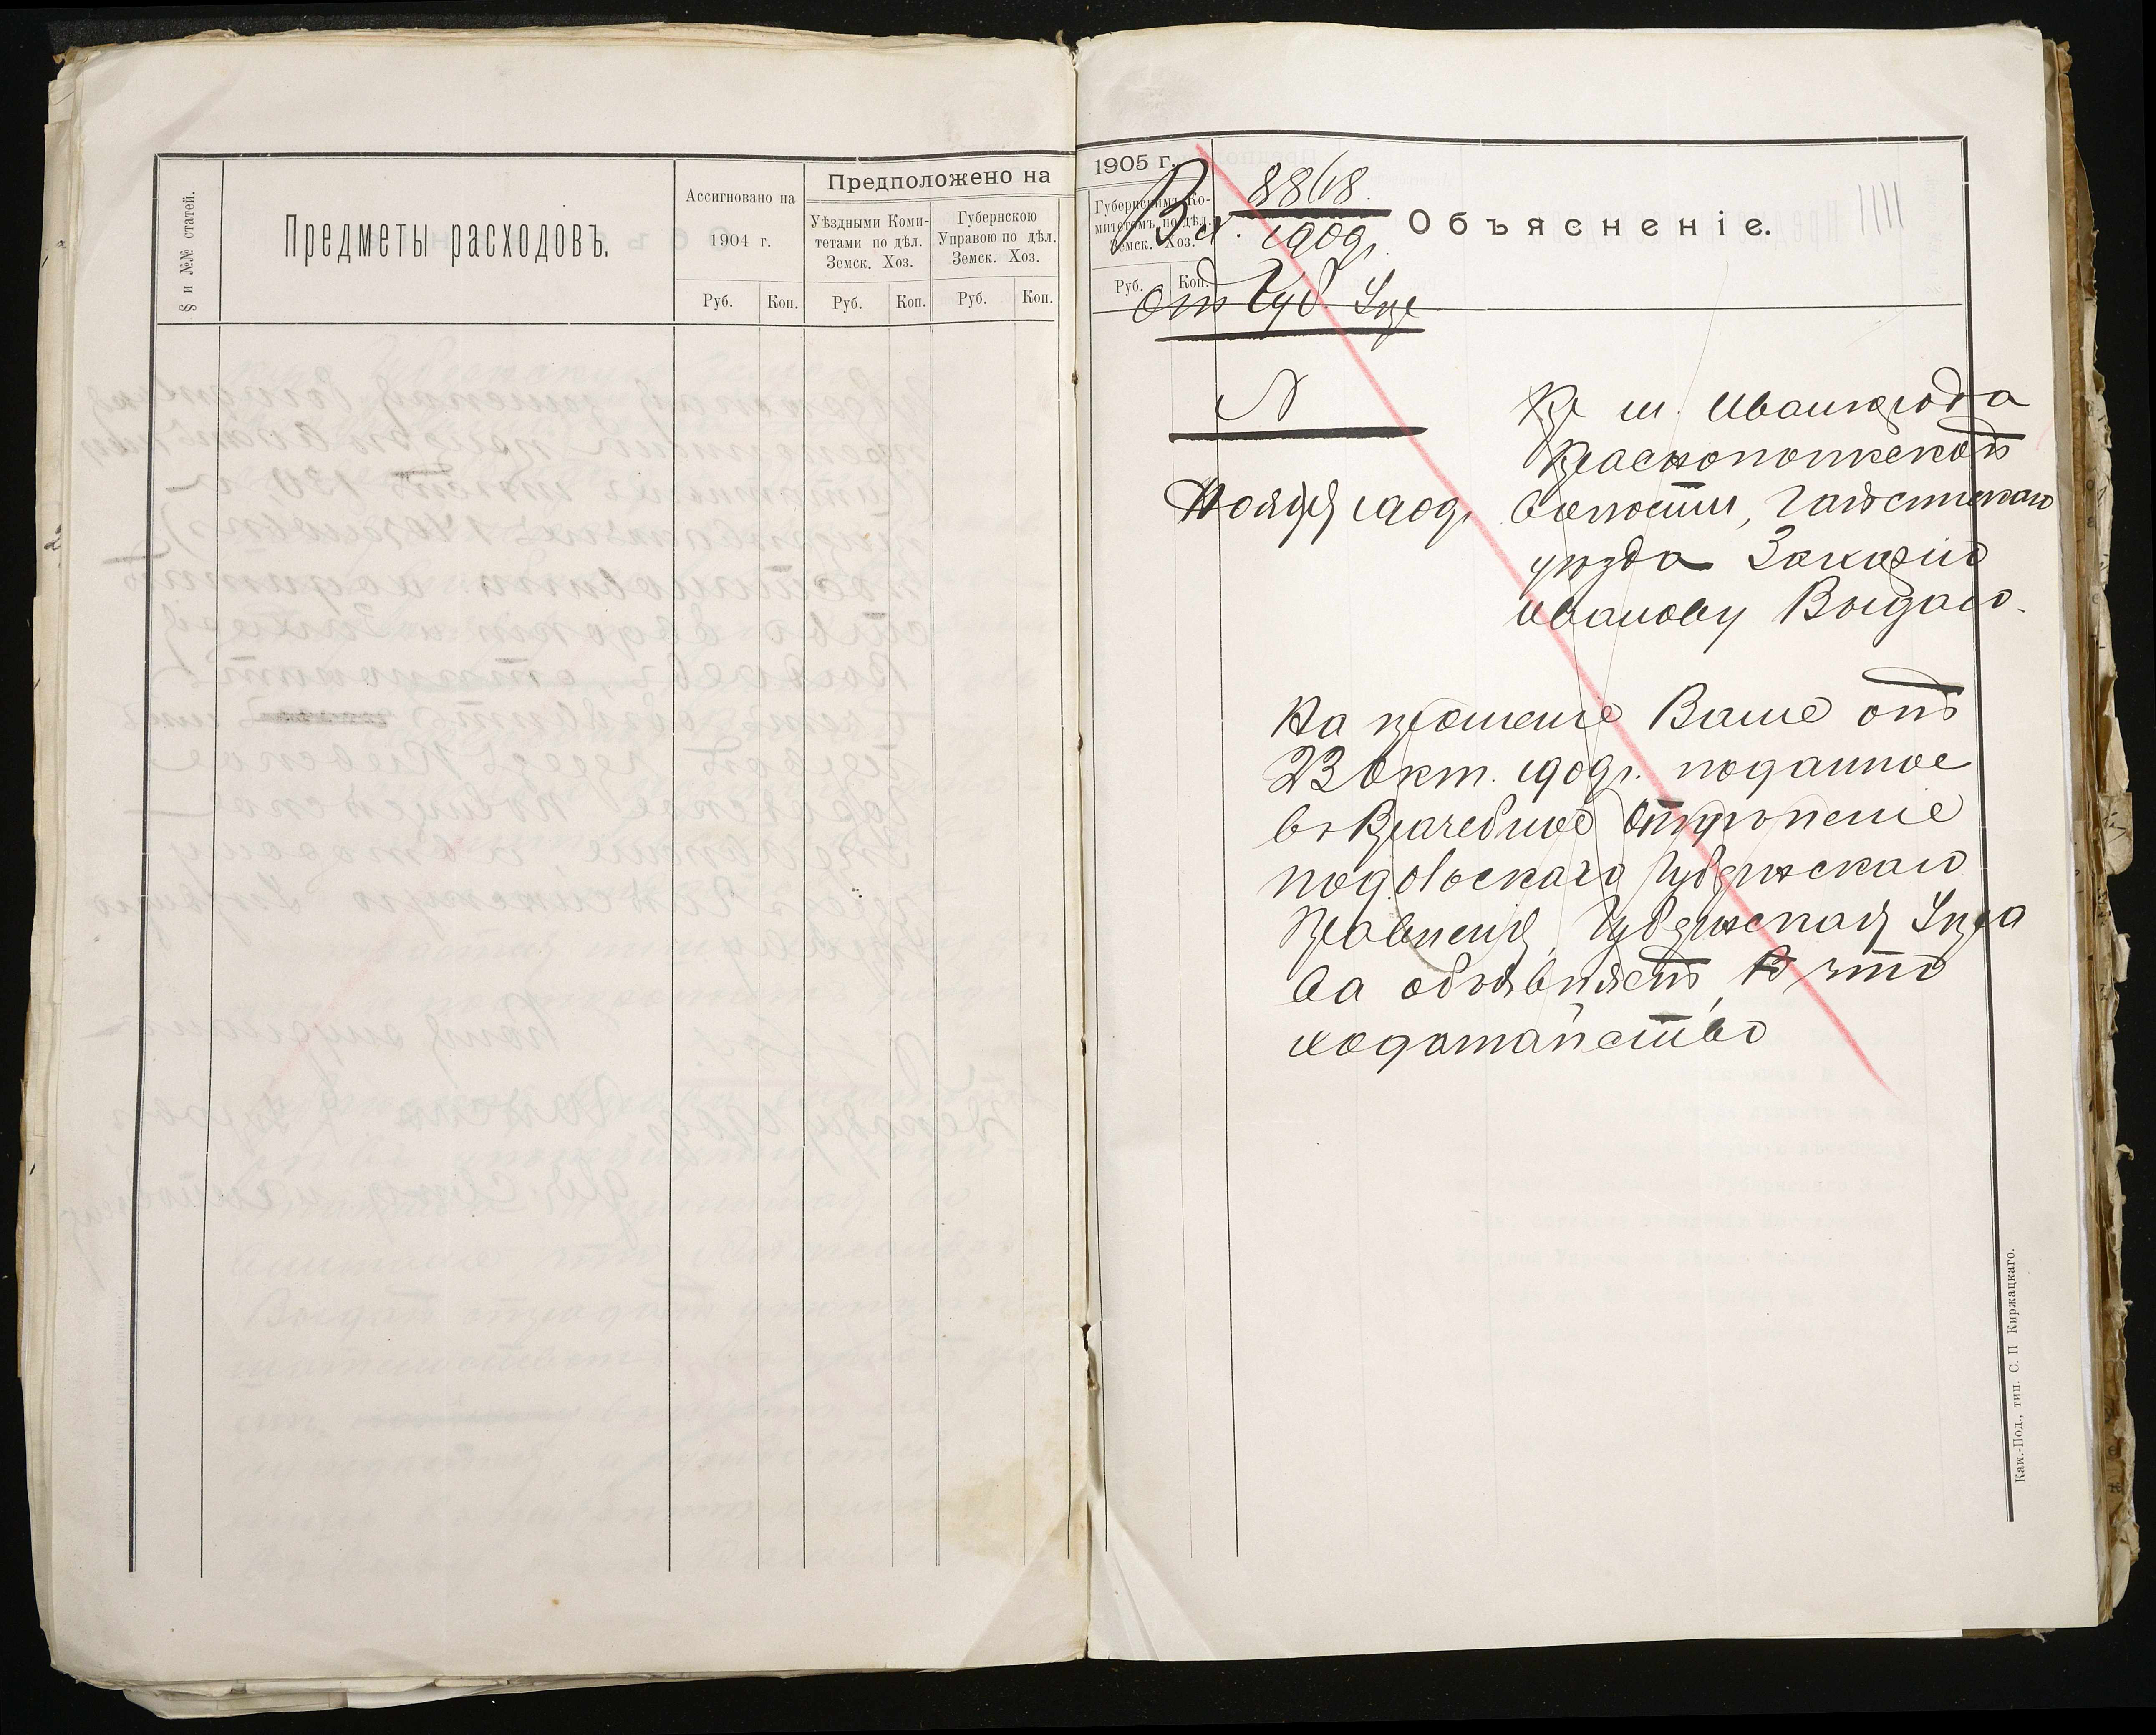 § и №№ статей.
Предметы расходовъ.
Ассигновано на
1904 г.
Руб. Коп.
Предположено на
Уѣздными Коми-
тетами по дѣл.
Земск. Хоз.
Руб. Коп.
Губернскою
Управою по дѣл.
Земск. Хоз.
Руб. Коп.
1905 г.
Губернскимъ Ко-
митетомъ по дѣл.
Земск. Хоз.
Руб. Коп.
Объясненіе.
Вх. 8868
1909г.
От Губ. Упр
N
Ноября 1909г
Кр м. Ивангорода
Краснопольской
волости, Гайсинскаго
уѣзда
Иванову
На прошеніе Ваше отъ
23 окт. 1909г. поданное
въ Врачебное Отдѣленіе
Подольскаго Губернскаго
Правленія, Губернская Упра
ва объявляетъ, что
ходатайство
Кам.-Под., тип. С. П Киржацкаго.